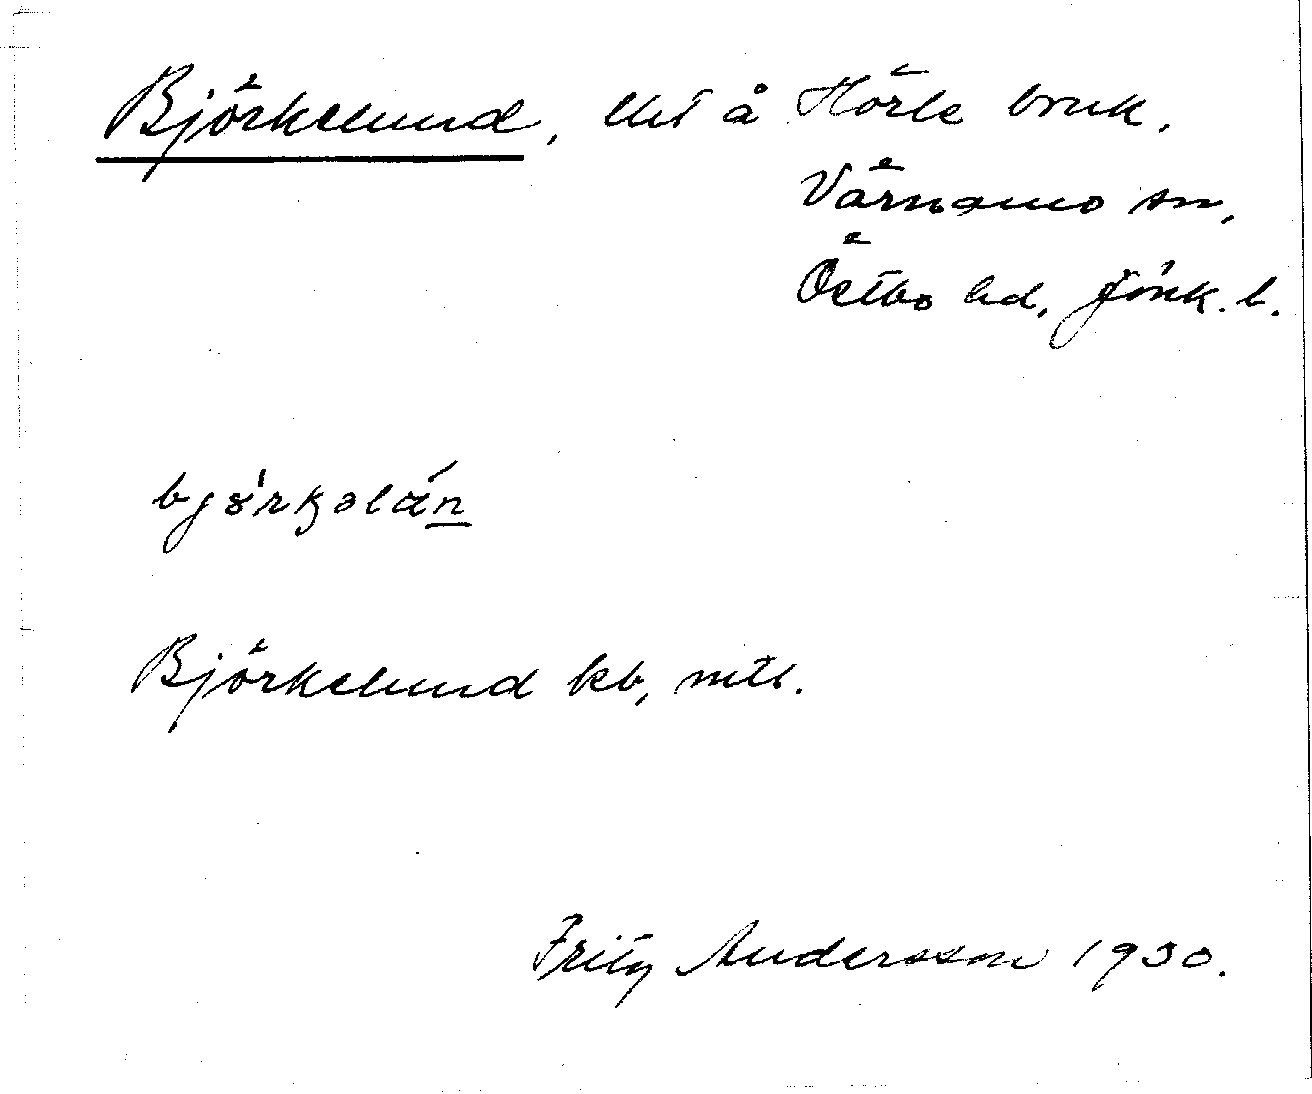 Björkelund, lht å Hörle bruk,
Värnamo sn,
Östbo hd, Jönk. l.
Björkelund kb, mtl.
Fritz Andersson 1930.